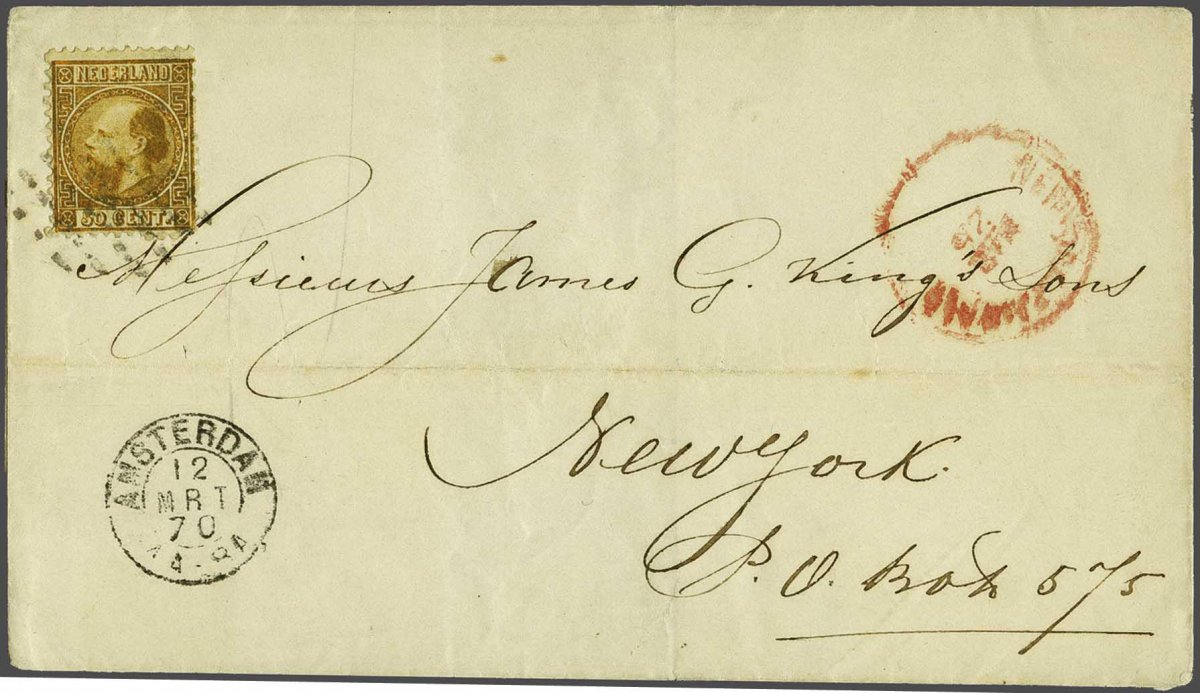 NEDERLAND
50 CENT.
Messieurs James G. King's Sons
New York.
P. O. Box 575
AMSTERDAM
12
MRT
70